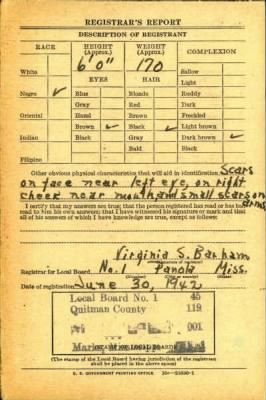 REGISTRAR'S REPORT
DESCRIPTION OF REGISTRANT
RACE HEIGHT (Approx.) WEIGHT (Approx.) COMPLEXION
6' 0" 170
White Sallow
EYES HAIR Light
Negro ✓ Blue Blonde Ruddy
Gray Red Dark
Oriental Hazel Brown Freckled
Brown ✓ Black ✓ Light brown
Indian Black Gray Dark brown ✓
Bald Black
Filipino
Other obvious physical characteristics that will aid in identification Scars
on face near left eye, on right
cheek near mouth and small scars on
arms
I certify that my answers are true; that the person registered has read or has had
read to him his own answers; that I have witnessed his signature or mark and that
all of his answers of which I have knowledge are true, except as follows:
Virginia S. Barham
(Signature of registrar)
Registrar for Local Board No. 1 Panola Miss.
(Number) (City or county) (State)
Date of registration June 30, 1942
Local Board No. 1 45
Quitman County 119
001
(STAMP OF LOCAL BOARD)
(The stamp of the Local Board having jurisdiction of the registrant
shall be placed in the above space)
U. S. GOVERNMENT PRINTING OFFICE